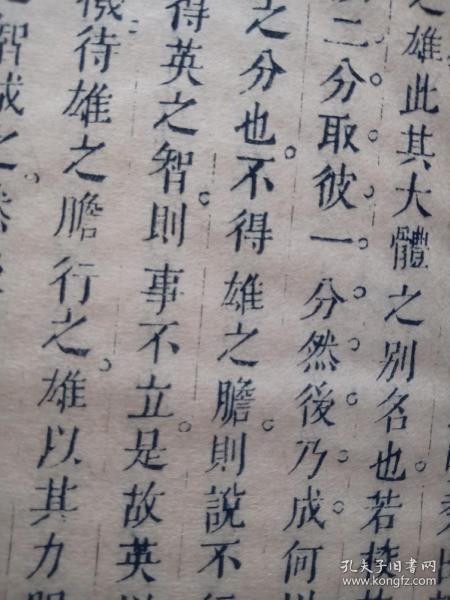 之雄此其大體之別名也。若
二分。取彼一。分然後乃成。何以
之分也。不得雄之膽。則說不行
得英之智。則事不立。是故英以
機待雄之膽行之。雄以其力服
智成之。然
孔夫子旧书网
www.kongfz.com